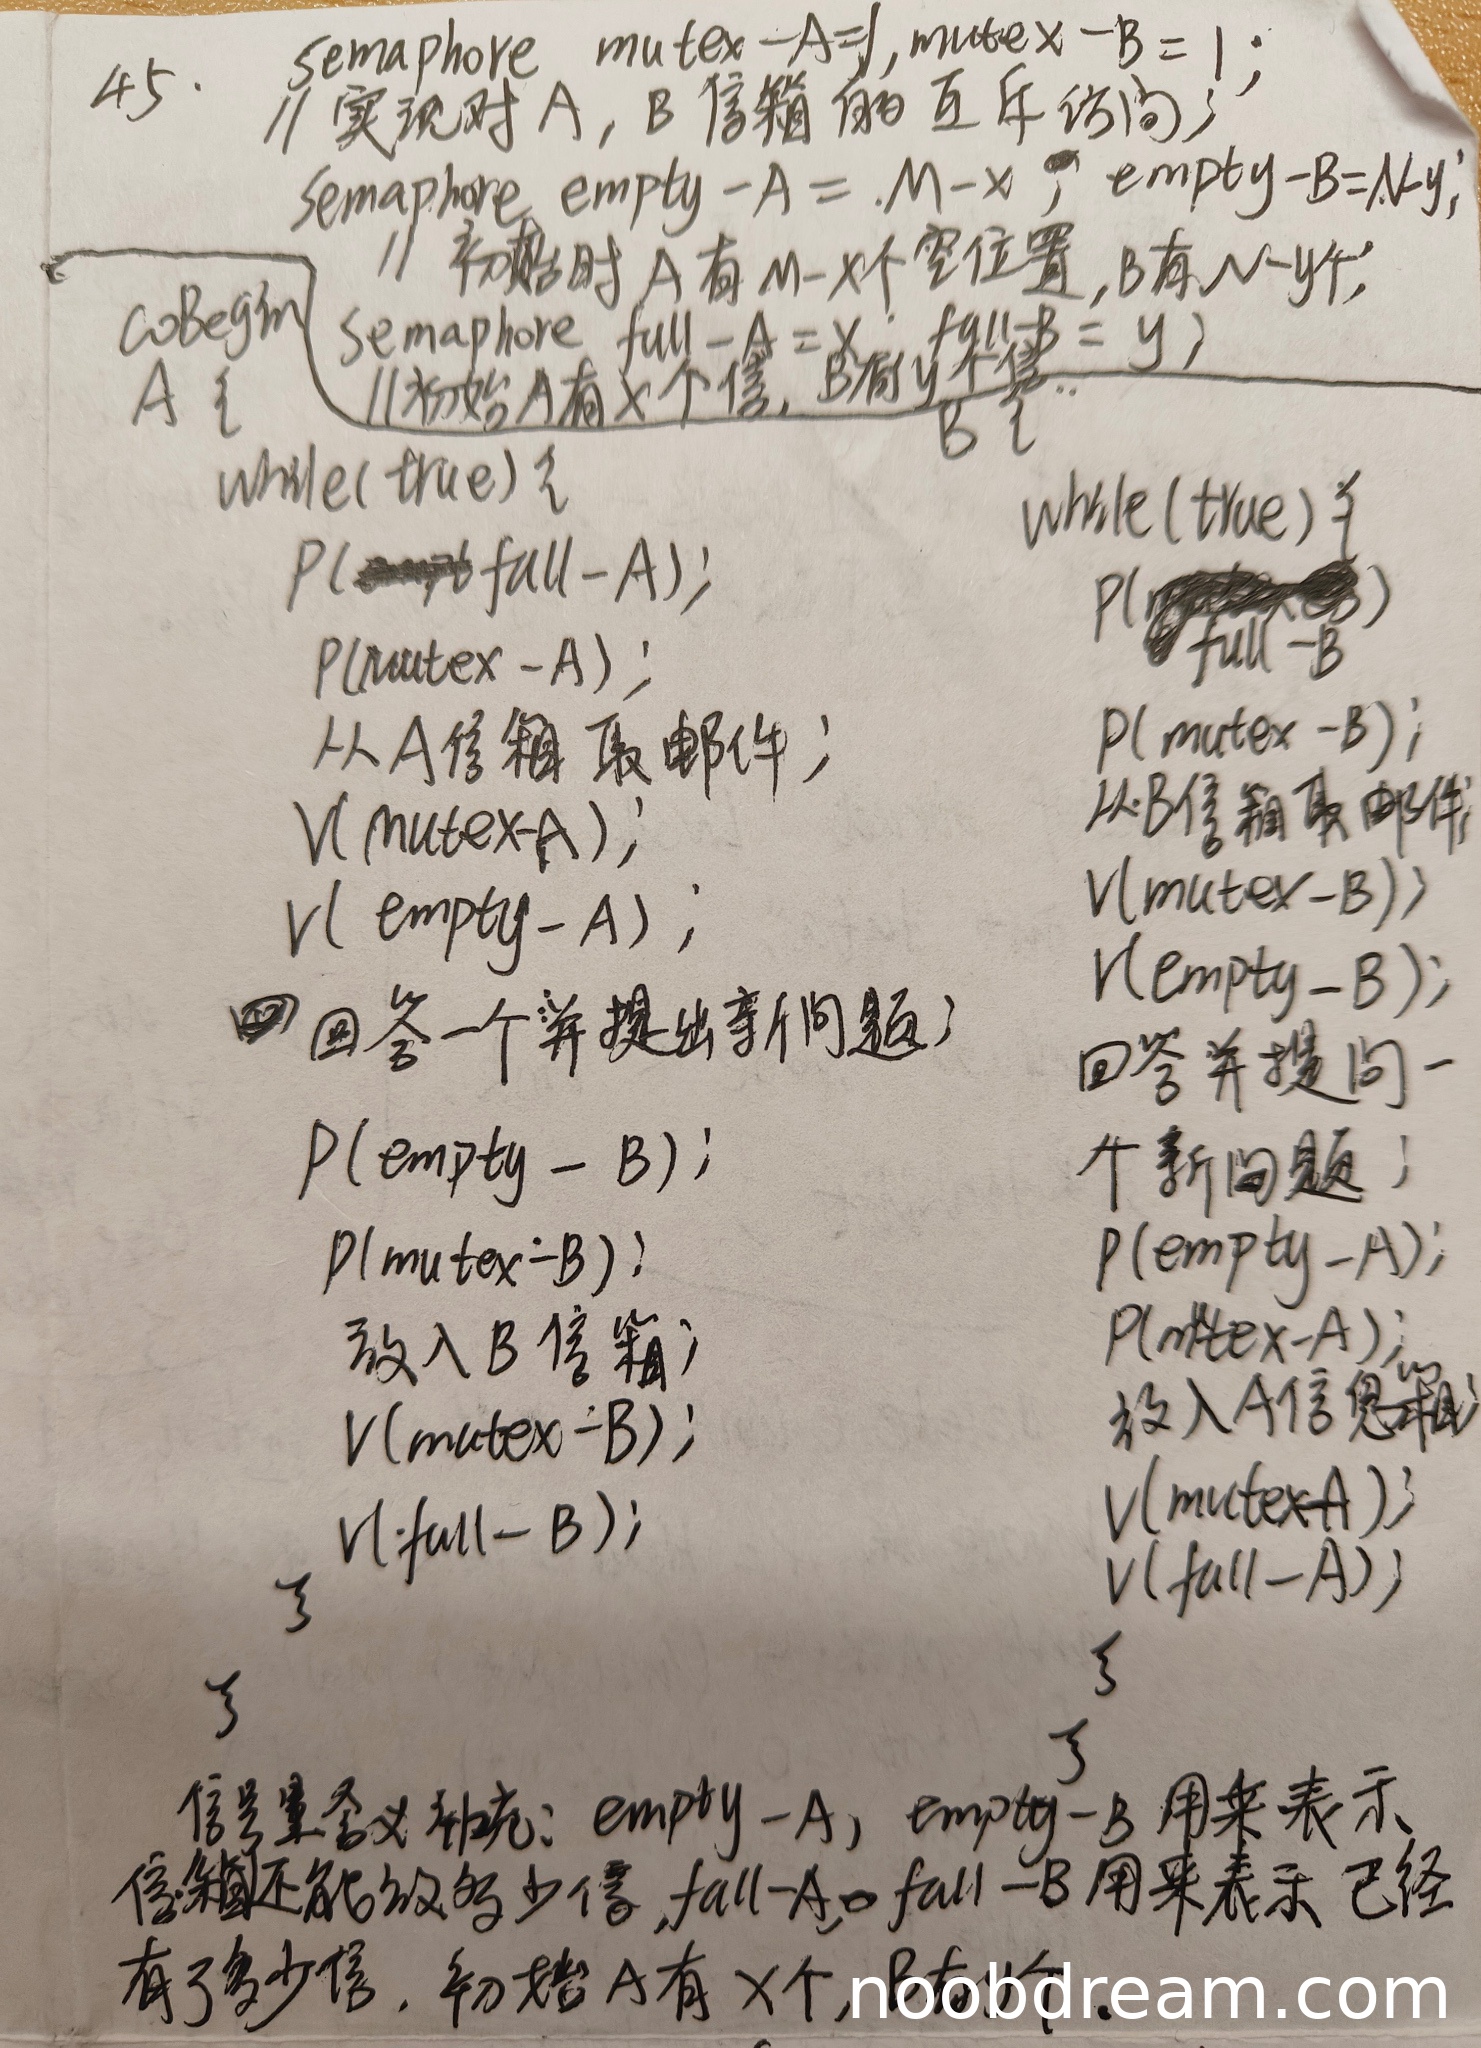 45. semaphore mutex-A=1, mutex-B=1;
//实现对A,B信箱的互斥访问;
semaphore empty-A=M-x; empty-B=N-y;
//初始时A有M-x个空位置,B有N-y个;
semaphore full-A=x; full-B=y;
//初始A有x个信,B有y个信.
CoBegin
A {
while(true) {
P(full-A);
P(mutex-A);
从A信箱取邮件;
V(mutex-A);
V(empty-A);
回答一个并提出新问题;
P(empty-B);
P(mutex-B);
放入B信箱;
V(mutex-B);
V(full-B);
}
}
B {
while(true) {
P(full-B)
P(mutex-B);
从B信箱取邮件;
V(mutex-B);
V(empty-B);
回答并提问一
个新问题;
P(empty-A);
P(mutex-A);
放入A信息箱;
V(mutex-A);
V(full-A);
}
}
信号量含义补充: empty-A, empty-B用来表示
信箱还能放多少信,full-A, full-B用来表示已经
有了多少信.初始A有x个,B有y个.
noobdream.com